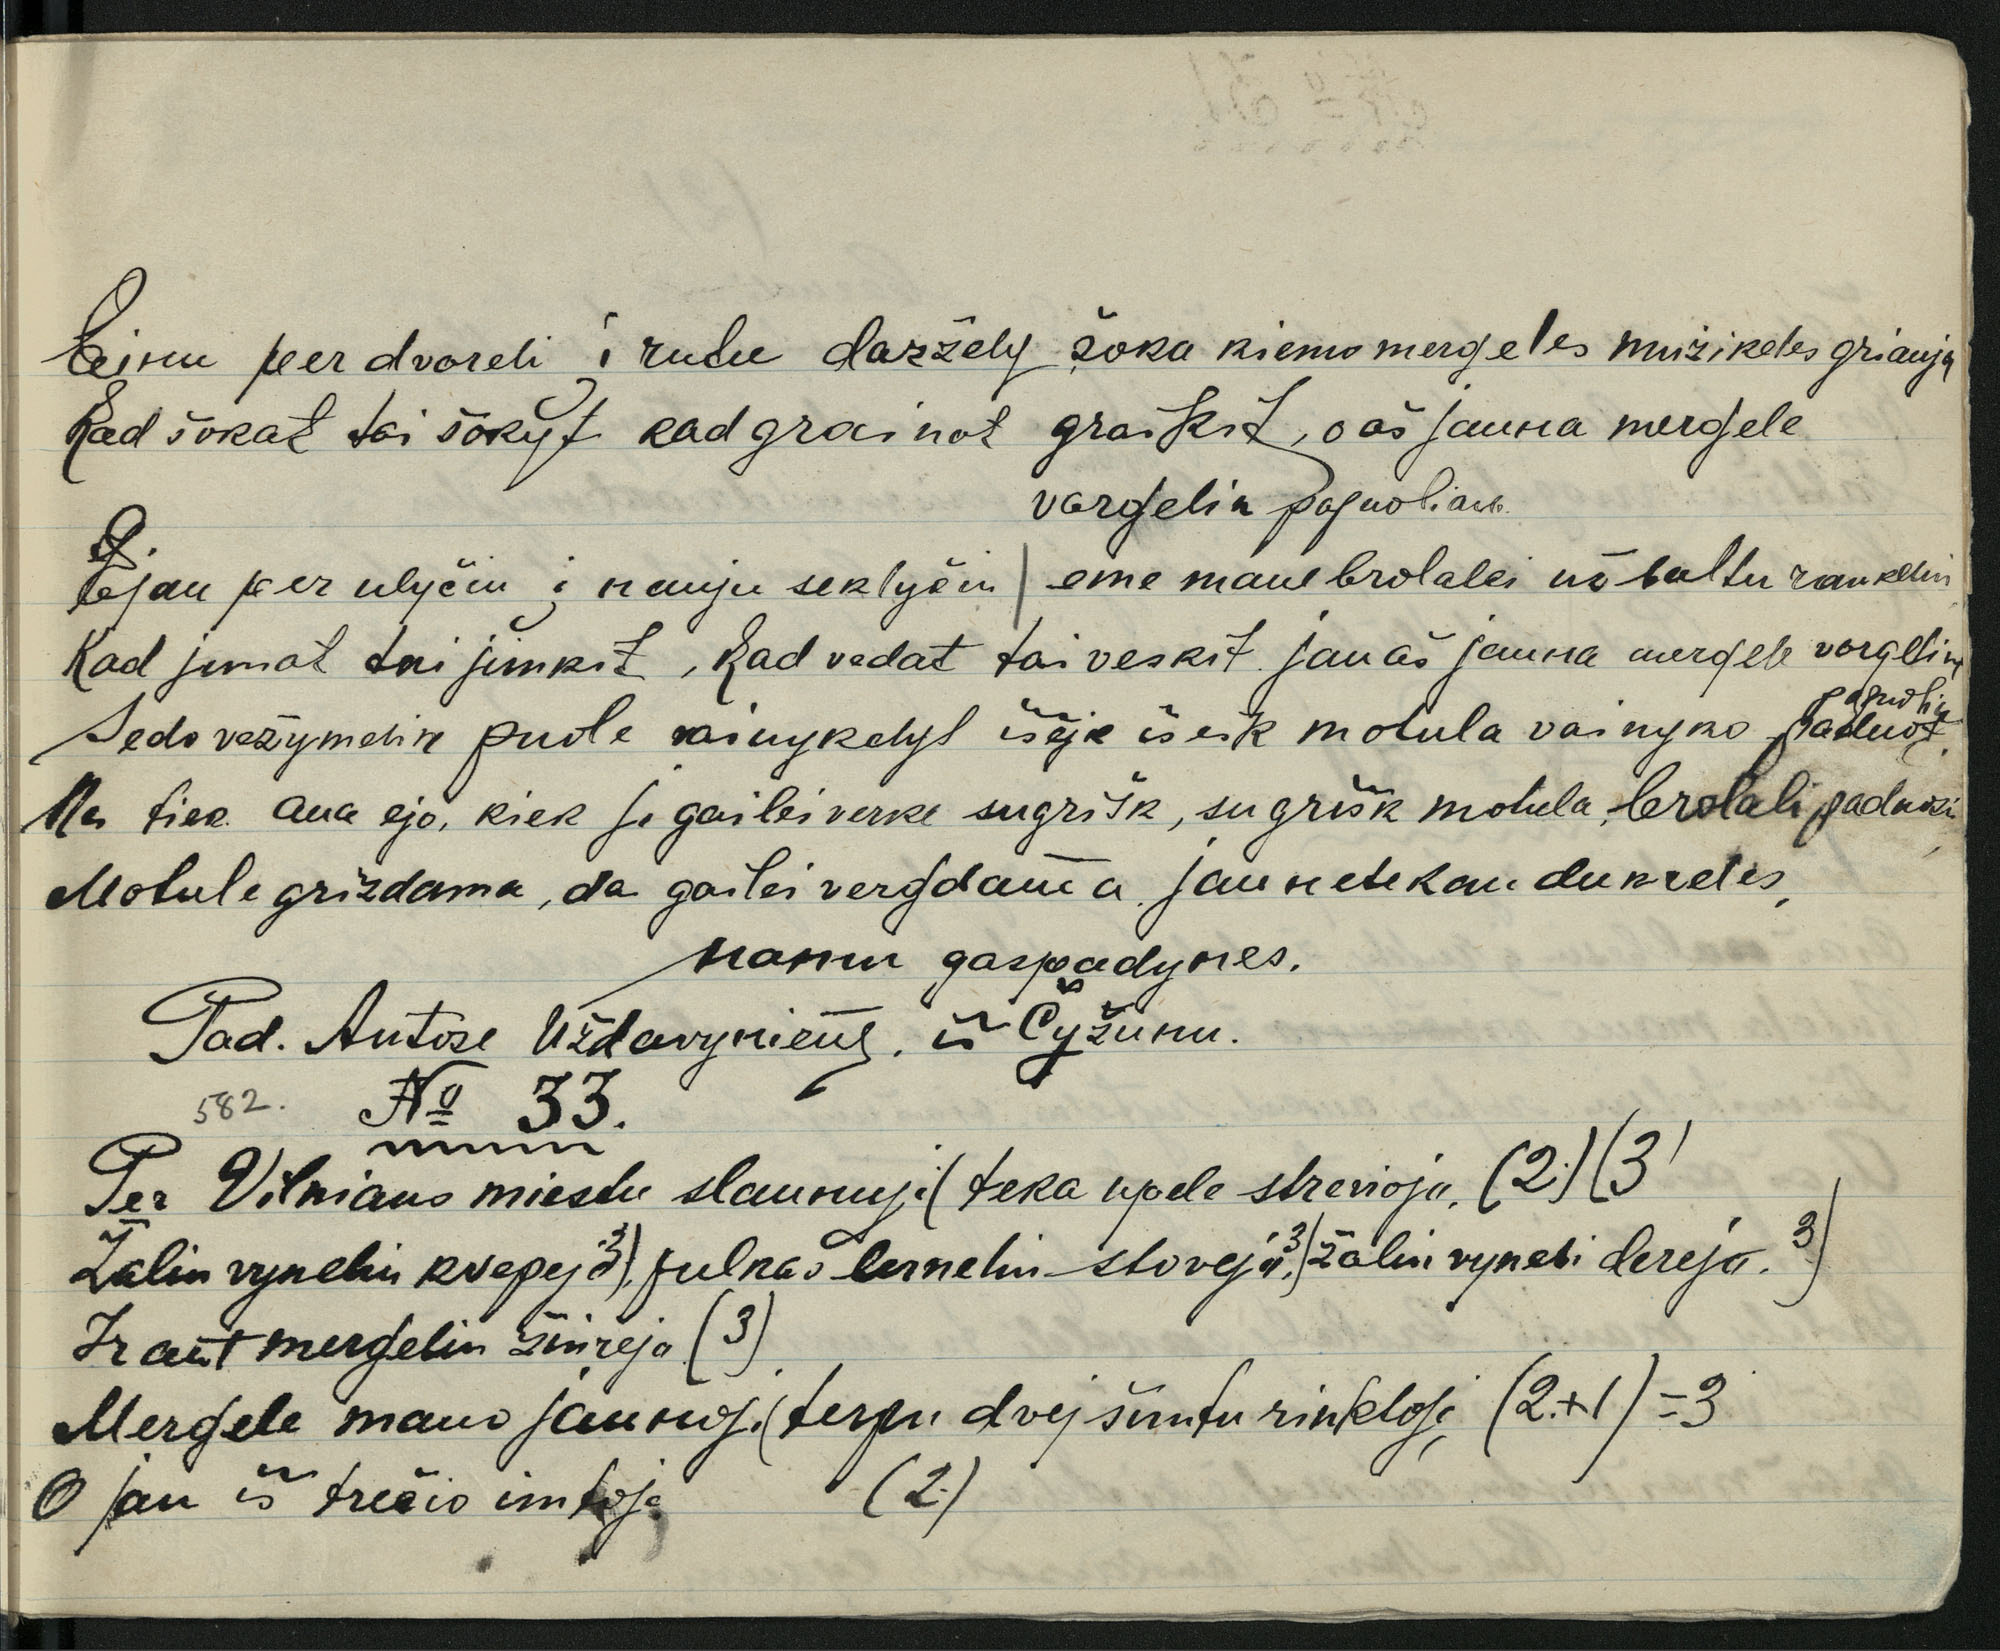 Einu per dvoreli į rutu dazžely šoka kiemo mergeles muzikeles griauja
Kad šokat tai šokyt kad grainot graikit, o aš jauna mergele
vargelin paguoliau.
Ėjau per ulyčiu į nauju seklyčiu | eme mane brolalei už baltu rankeliu
Kad jimat tai jimkit, Kad vedat tai veskit jau aš jauna mergele vargelin
paguoliu
Sedo vežymelin puole vainykelys išėjk išeik motula vainyko paduot.
Na tiek ana ejo, kiek ji gailei verke sugrišk, sugrišk motula, brolali paduosi
Motule grizdama, da gailei vergdama jau netekau dukreles,
namu gaspadynes.
Pad. Antose Uždavynienę. iš Čyžunu.
582. № 33.
Per Vilniaus miestu slaunuji (teka upele strevioja. (2.) (3
Žalin vynelin kvepeja 3), pulkas bernelin stoveja, 3) žalin vyneli dereja. 3)
Ir ant mergelin žiureja (3)
Mergele mano jaunoji (terpu dvej šimtu rinktoji (2.+1) = 3
O jau iš trečio imtoji (2.)